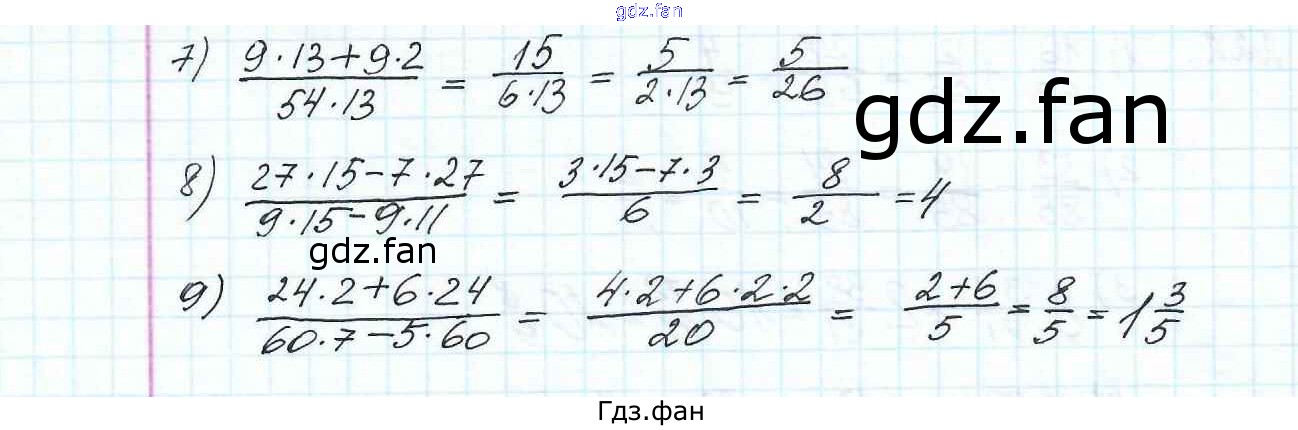 gdz.fan
7) (9·13+9·2)/(54·13) = 15/(6·13) = 5/(2·13) = 5/26
gdz.fan
8) (27·15-7·27)/(9·15-9·11) = (3·15-7·3)/6 = 8/2 = 4
gdz.fan
9) (24·2+6·24)/(60·7-5·60) = (4·2+6·2·2)/20 = (2+6)/5 = 8/5 = 1 3/5
Гдз.фан